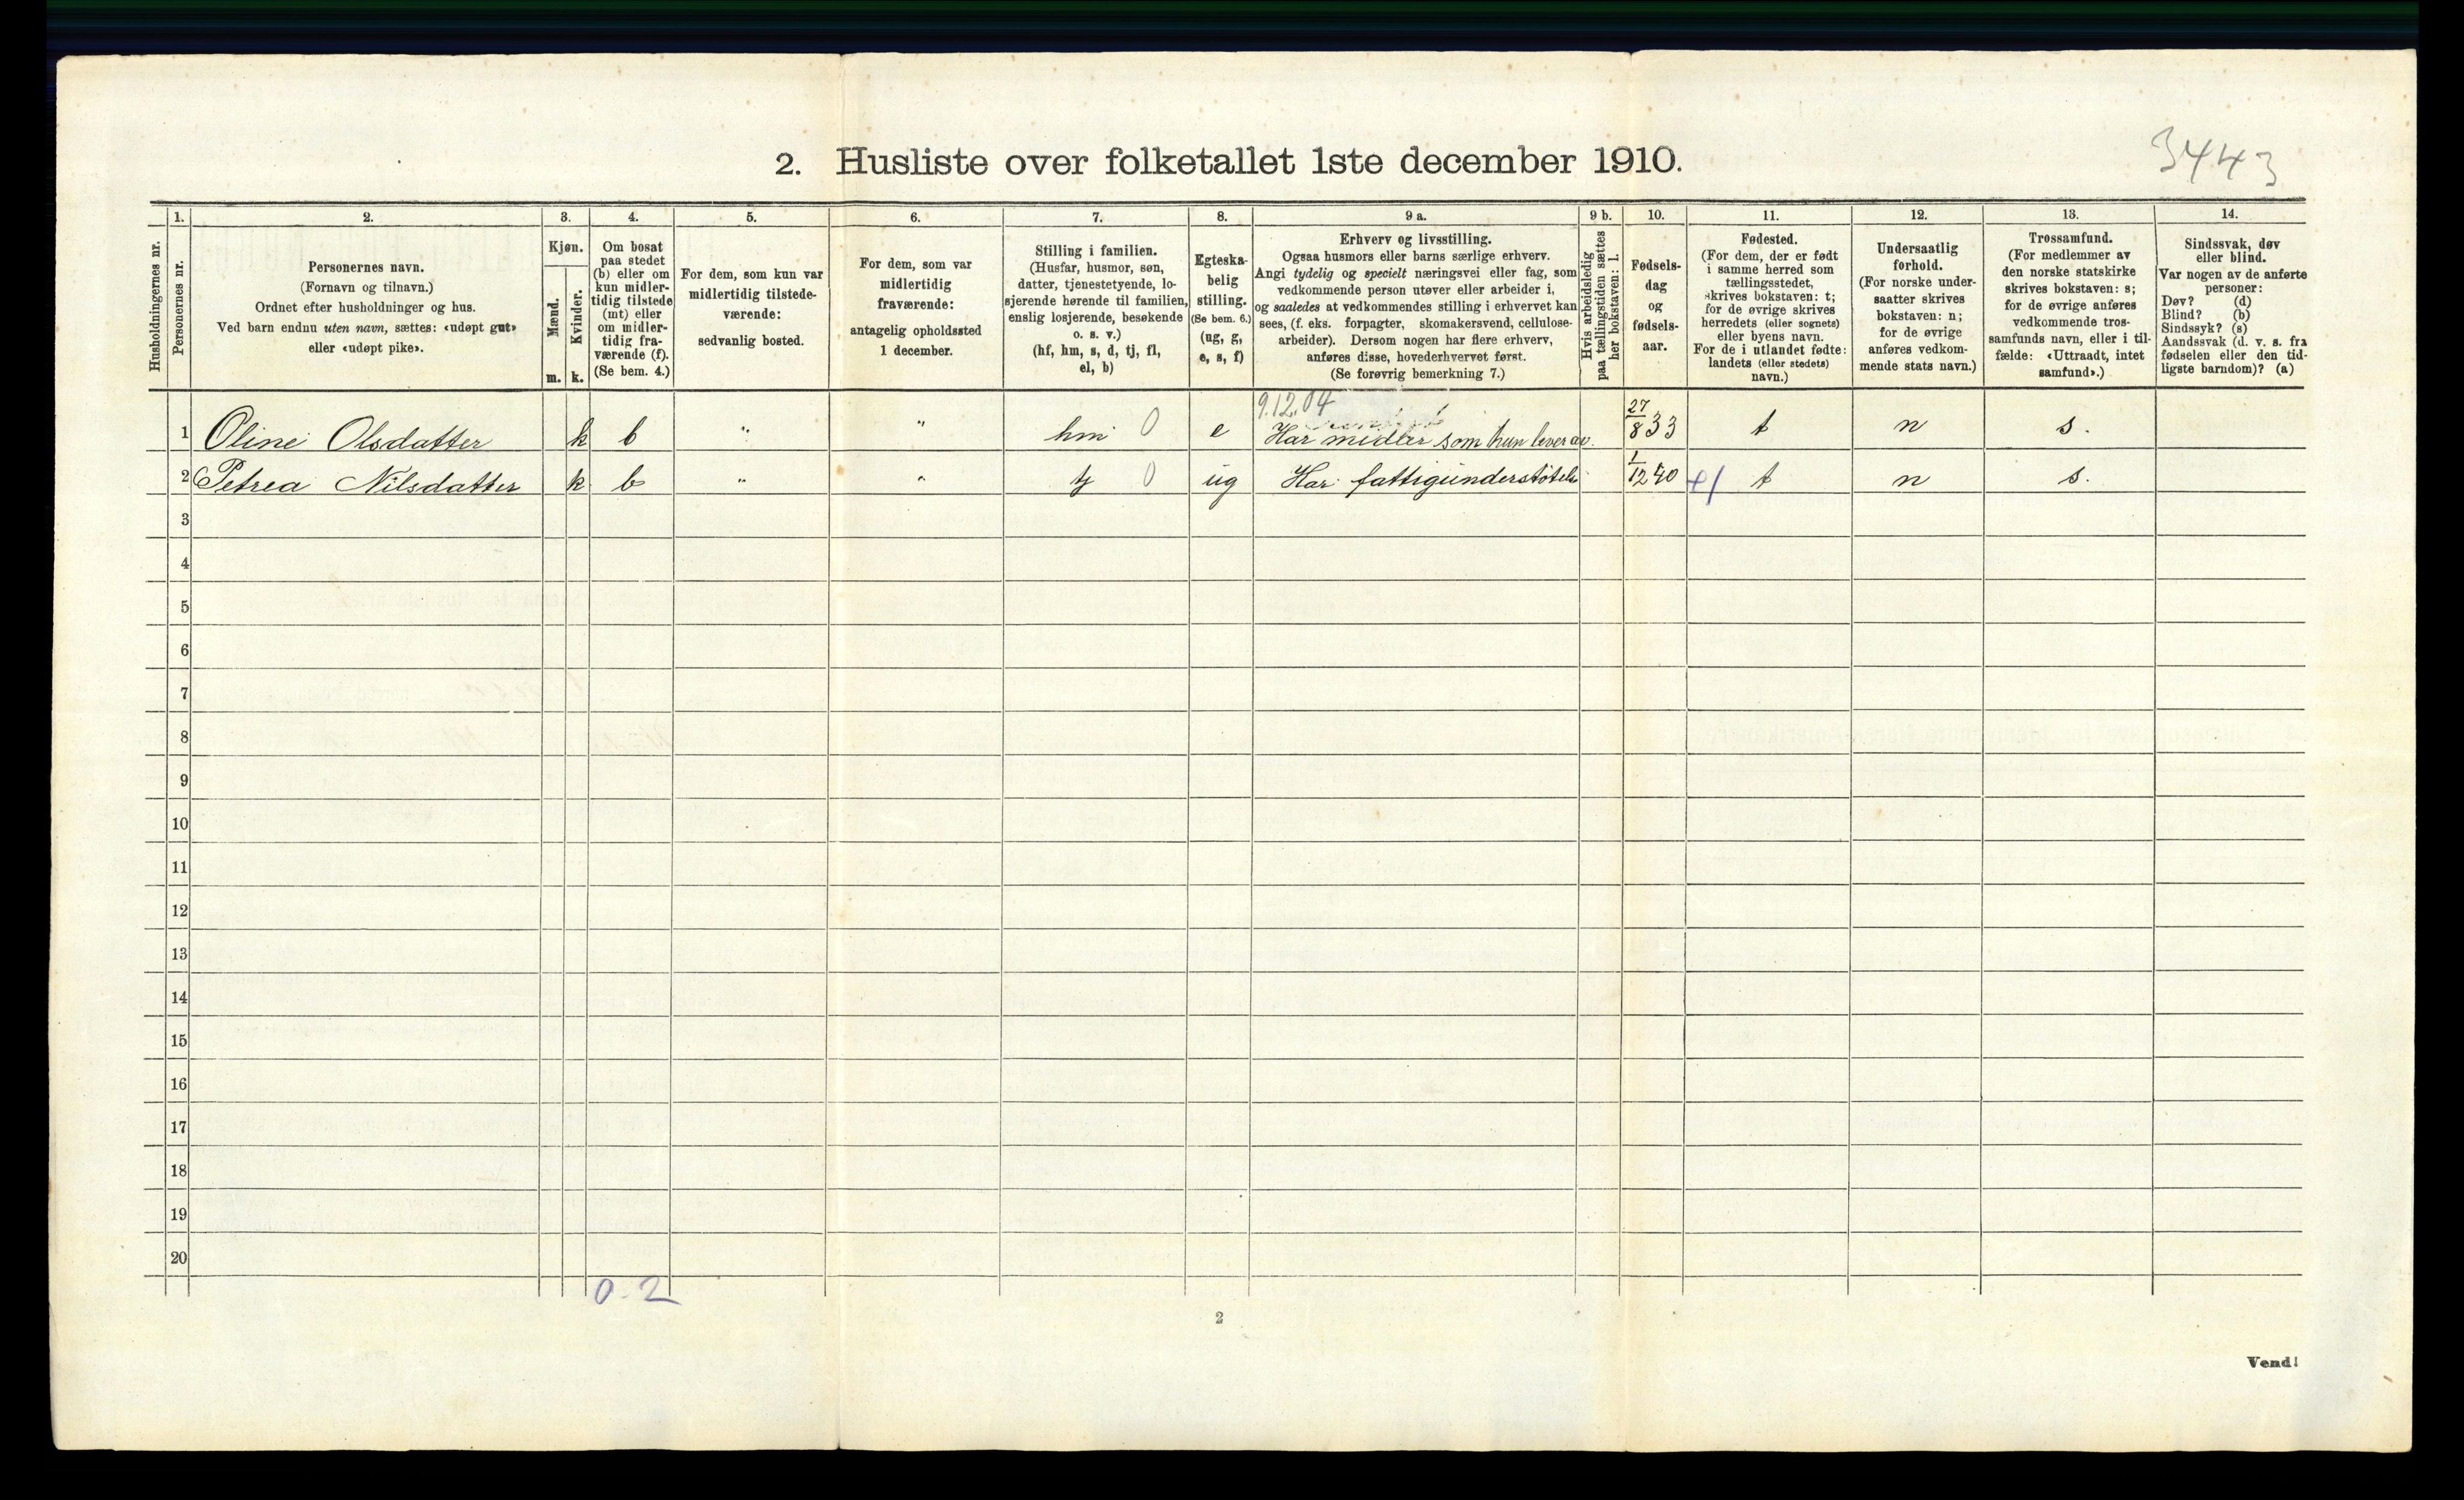 3443
2. Husliste over folketallet 1ste december 1910.
Husholdningernes nr.
1.
Personernes nr.
2.
Personernes navn.
(Fornavn og tilnavn.)
Ordnet efter husholdninger og hus.
Ved barn endnu uten navn, sættes: «udøpt gut»
eller «udøpt pike».
3.
Kjøn.
Mænd.
m.
Kvinder.
k.
4.
Om bosat
paa stedet
(b) eller om
kun midler-
tidig tilstede
(mt) eller
om midler-
tidig fra-
værende (f).
(Se bem. 4.)
5.
For dem, som kun var
midlertidig tilstede-
værende:
sedvanlig bosted.
6.
For dem, som var
midlertidig
fraværende:
antagelig opholdssted
1 december.
7.
Stilling i familien.
(Husfar, husmor, søn,
datter, tjenestetyende, lo-
sjerende hørende til familien,
enslig losjerende, besøkende
o. s. v.)
(hf, hm, s, d, tj, fl,
el, b)
8.
Egteska-
belig
stilling.
(Se bem. 6.)
(ug, g,
e, s, f)
9 a.
Erhverv og livsstilling.
Ogsaa husmors eller barns særlige erhverv.
Angi tydelig og specielt næringsvei eller fag, som
vedkommende person utøver eller arbeider i,
og saaledes at vedkommendes stilling i erhvervet kan
sees, (f. eks. forpagter, skomakersvend, cellulose-
arbeider). Dersom nogen har flere erhverv,
anføres disse, hovederhvervet først.
(Se forøvrig bemerkning 7.)
9 b.
Hvis arbeidsledig
paa tællingstiden sættes
her bokstaven: l.
10.
Fødsels-
dag
og
fødsels-
aar.
11.
Fødested.
(For dem, der er født
i samme herred som
tællingsstedet,
skrives bokstaven: t;
for de øvrige skrives
herredets (eller sognets)
eller byens navn.
For de i utlandet fødte:
landets (eller stedets)
navn.)
12.
Undersaatlig
forhold.
(For norske under-
saatter skrives
bokstaven: n;
for de øvrige
anføres vedkom-
mende stats navn.)
13.
Trossamfund.
(For medlemmer av
den norske statskirke
skrives bokstaven: s;
for de øvrige anføres
vedkommende tros-
samfunds navn, eller i til-
fælde: «Uttraadt, intet
samfund».)
14.
Sindssvak, døv
eller blind.
Var nogen av de anførte
personer:
Døv? (d)
Blind? (b)
Sindssyk? (s)
Aandssvak (d. v. s. fra
fødselen eller den tid-
ligste barndom)? (a)
9.12.04
1 Oline Olsdatter k b " " hm 0 e Har midler som hun lever av. 27/8 33 t n s.
2 Petrea Nilsdatter k b " " tj 0 ug Har fattigunderstøtelse 1/12 40 t n s.
3
4
5
6
7
8
9
10
11
12
13
14
15
16
17
18
19
20
0-2
2
Vend!